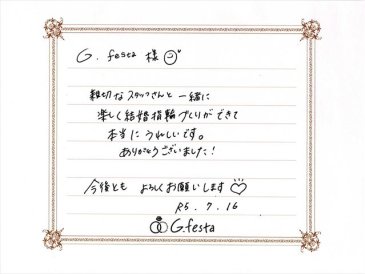 G. festa 様
親切なスタッフさんと一緒に
楽しく結婚指輪づくりができて
本当にうれしいです。
ありがとうございました!
今後とも よろしくお願いします♡
R5.7.16
G.festa